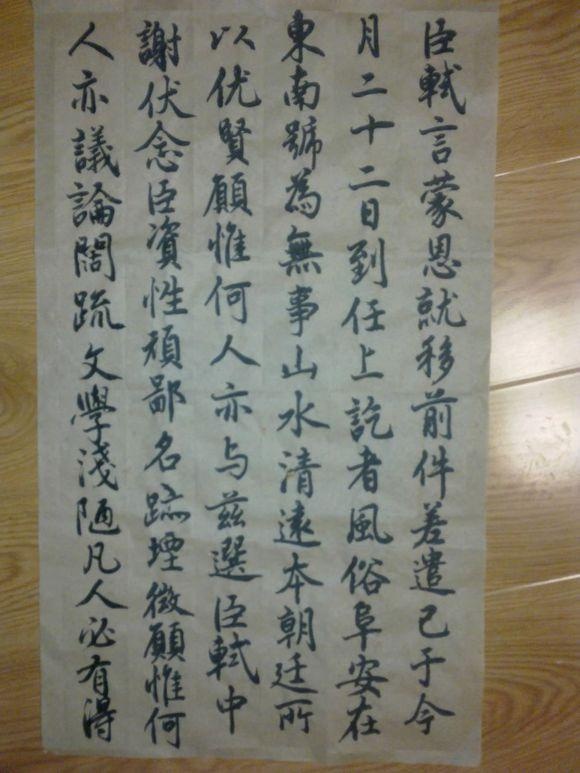 臣軾言蒙恩就移前件差遣已于今
月二十二日到任上訖者風俗阜安在
東南號為無事山水清遠本朝廷所
以优賢顧惟何人亦与茲選臣軾中
謝伏念臣資性頑鄙名跡堙微顧惟何
人亦議論闊疏文學淺陋凡人必有得